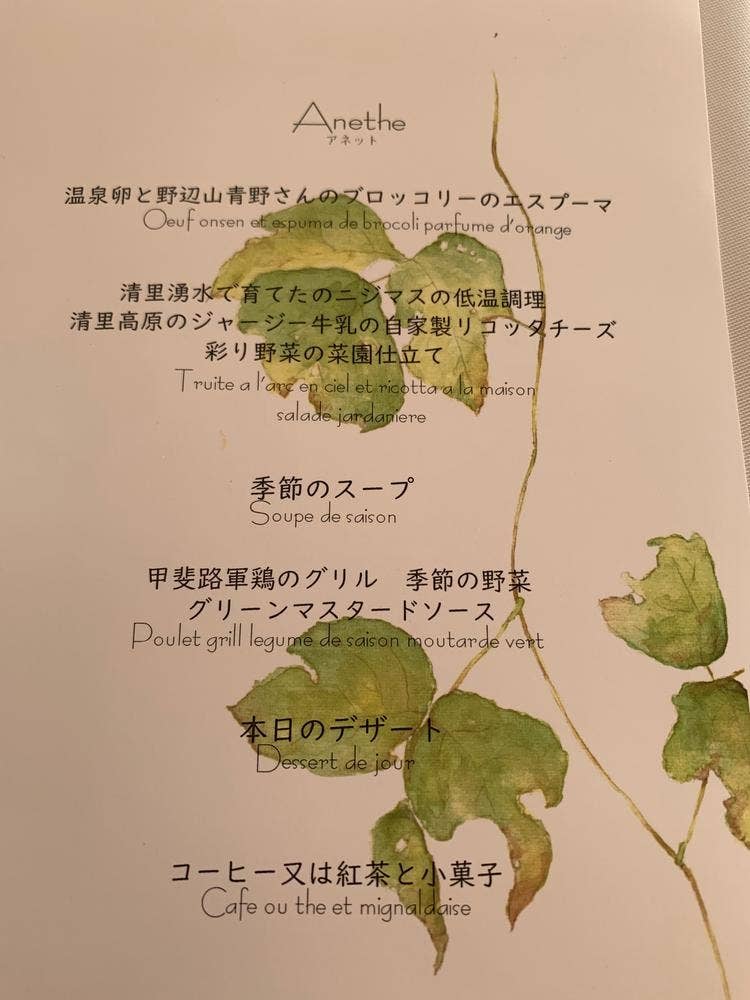 Anethe
アネット
温泉卵と野辺山青野さんのブロッコリーのエスプーマ
Oeuf onsen et espuma de brocoli parfume d'orange
清里湧水で育てたのニジマスの低温調理
清里高原のジャージー牛乳の自家製リコッタチーズ
彩り野菜の菜園仕立て
Truite a l'arc en ciel et ricotta a la maison
salade jardaniere
季節のスープ
Soupe de saison
甲斐路軍鶏のグリル　季節の野菜
グリーンマスタードソース
Poulet grill legume de saison moutarde vert
本日のデザート
Dessert de jour
コーヒー又は紅茶と小菓子
Cafe ou the et mignaldaise